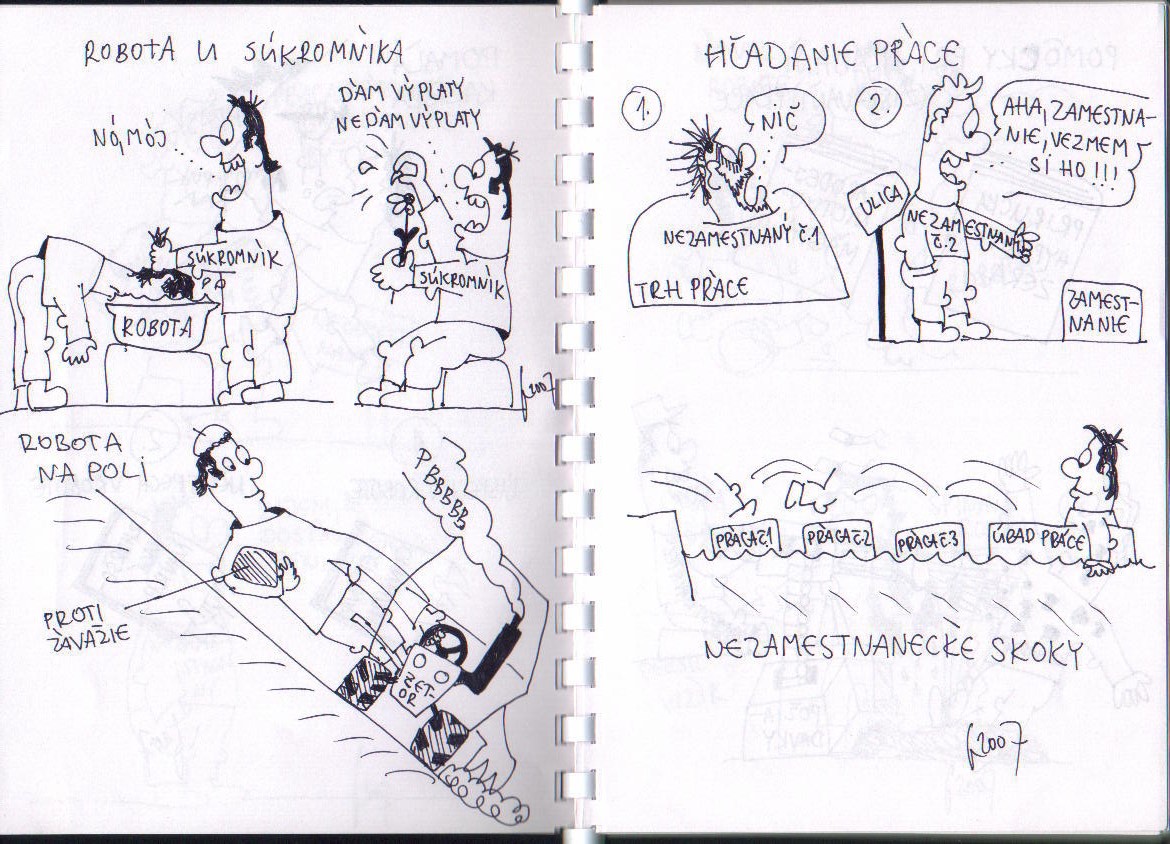 ROBOTA U SÚKROMNÍKA
NÓ, MÔJ...
SÚKROMNÍK
ROBOTA
ĎÁM VÝPLATY
NEĎÁM VÝPLATY
SÚKROMNÍK
2007
ROBOTA
NA POLI
PBBBBB
PROTI
ZÁVAŽIE
ZET-
OR
HĽADANIE PRÁCE
1.
NIČ
NEZAMESTNANÝ Č.1
TRH PRÁCE
2.
AHA, ZAMESTNA-
NIE, VEZMEM
SI HO!!!
ULICA
NEZAMESTNANÝ
Č.2
ZAMEST-
NANIE
PRÁCA Č.1
PRÁCA Č.2
PRÁCA Č.3
ÚRAD PRÁCE
NEZAMESTNANECKÉ SKOKY
2007